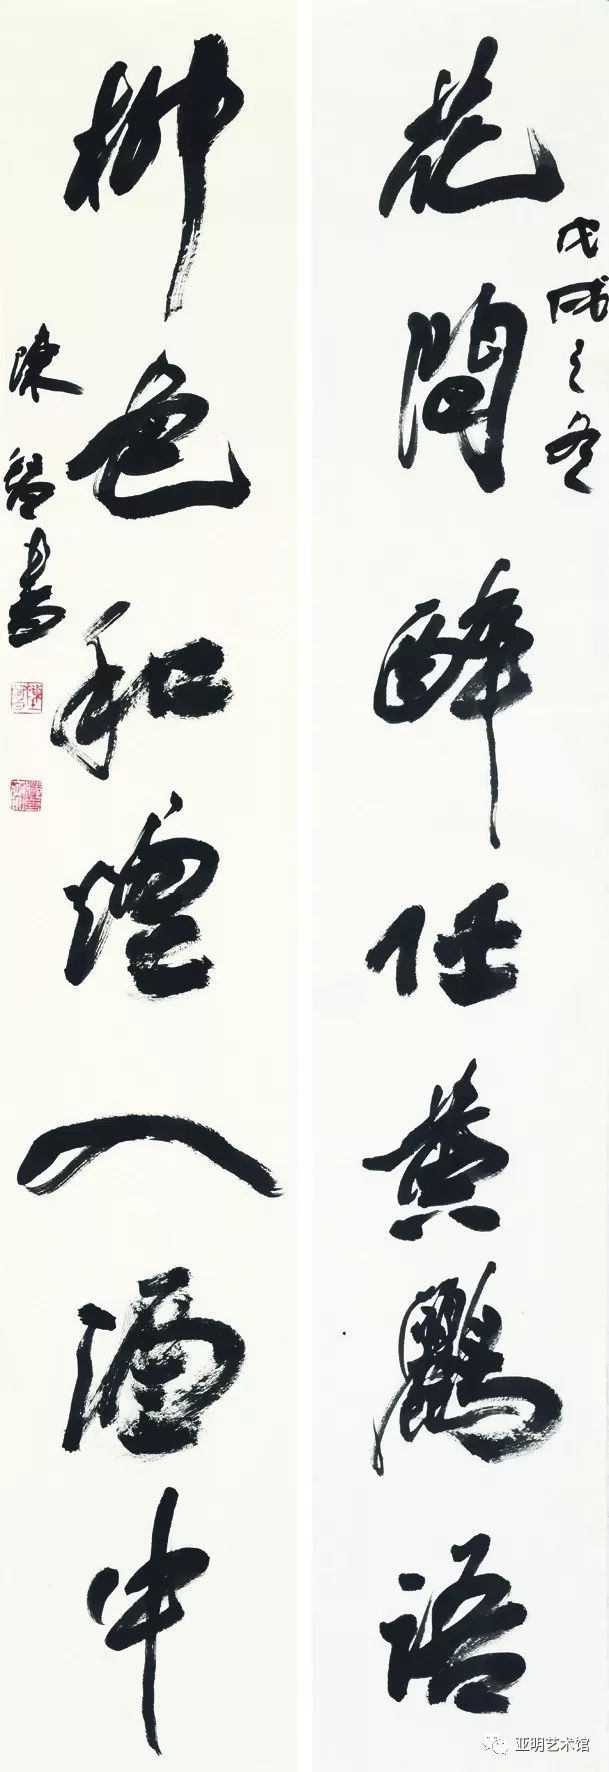 戊戌之冬
花間醉任黃鸝語
柳色和煙入酒中
陳書
亚明艺术馆